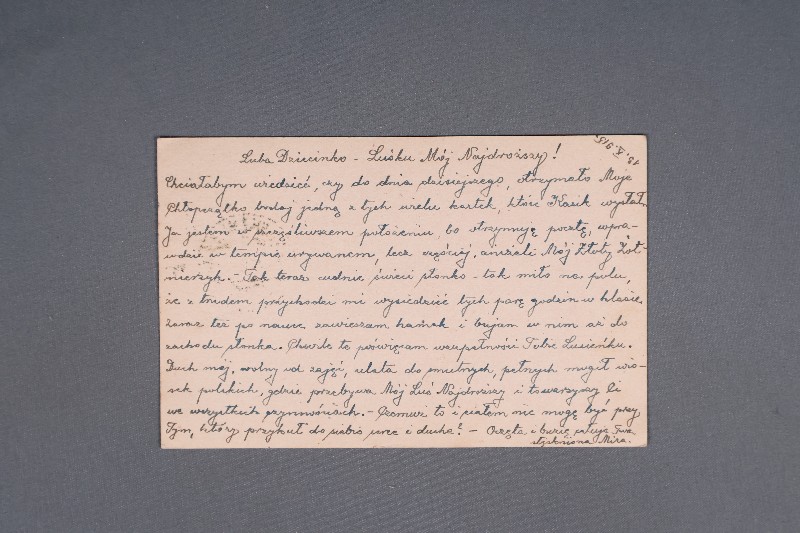 18.X.915.
Luba Dziecinko - Luśku Mój Najdroższy!
Chciałabym wiedzieć, czy do dnia dzisiejszego, otrzymało Moje
Chłopczątko bodaj jedną z tych wielu kartek, które Kasik wysłał
Ja jestem w szczęśliwszem położeniu, bo otrzymuję pocztę, wpra-
wdzie w tempie urywanem, lecz częściej, aniżeli Mój Złoty Żoł-
nierzyk. - Tak teraz cudnie świeci słonko - tak miło na polu,
że z trudem przychodzi mi wysiedzieć tych parę godzin w klasie.
Zaraz też po nauce zawieszam hamak i bujam w nim aż do
zachodu słonka. Chwile te poświęcam w zupełności Tobie Lusieńku.
Duch mój, wolny od zajęć, ulata do smutnych, pełnych mogił wio-
sek polskich, gdzie przebywa Mój Luś Najdroższy i towarzyszy Ci
we wszystkich czynnościach. - Czemuż to i ciałem nie mogę być przy
Tym, który przykuł do siebie serce i duchę! - Oczęta i buzię całuje Twa
stęskniona Mira.